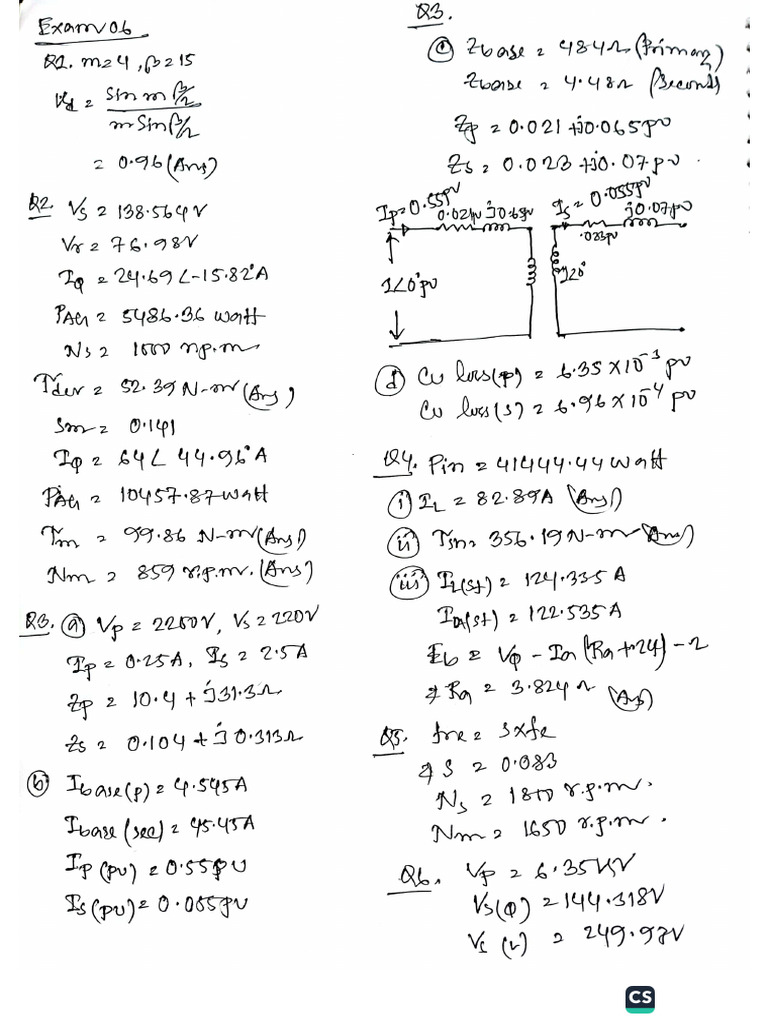 Exam 06
Q1. m=4, β=15
Vd = Sin mβ/2
m Sin β/2
= 0.96 (Ans)
Q2. Vs = 138.564V
Vr = 76.98V
= 24.69∠-15.82°A
PAG = 5486.36 watt
Ns = 1000 r.p.m
Tdev = 52.39 N-m (Ans)
Sm = 0.141
= 64∠44.96°A
PAG = 10457.87 watt
Tm = 99.86 N-m (Ans)
Nm = 859 r.p.m. (Ans)
Q3. (a) Vp = 2200V, Vs = 220V
Ip = 0.25A, Is = 2.5A
Zp = 10.4 + j31.3Ω
Zs = 0.104 + j0.313Ω
(b) Ibase(p) = 4.545A
Ibase(sec) = 45.45A
Ip(pu) = 0.55pu
Is(pu) = 0.055pu
Q3.
(c) Zbase = 484Ω (Primary)
Zbase = 4.48Ω
Zp = 0.021 + j0.065pu
Zs = 0.023 + j0.07pu
Ip = 0.55pu
Is = 0.055pu
j0.07pu
.023pu
1∠0° pu
1∠0°
(d) Cu loss(p) = 6.35 × 10⁻³ pu
Cu loss(s) = 6.96 × 10⁻⁴ pu
Q4. Pin = 41444.44 watt
(i) IL = 82.89A (Ans)
(ii) = 356.19 N-m (Ans)
(iii) IL(st) = 124.335 A
Ia(st) = 122.535A
Eb = - Ia(Ra + 24) - 2
Ra = 3.824Ω (Ans)
Q5. fre = s×fe
s = 0.083
Ns = 1800 r.p.m.
Nm = 1650 r.p.m.
Q6. Vp = 6.35kV
= 144.318V
= 249.97V
CS